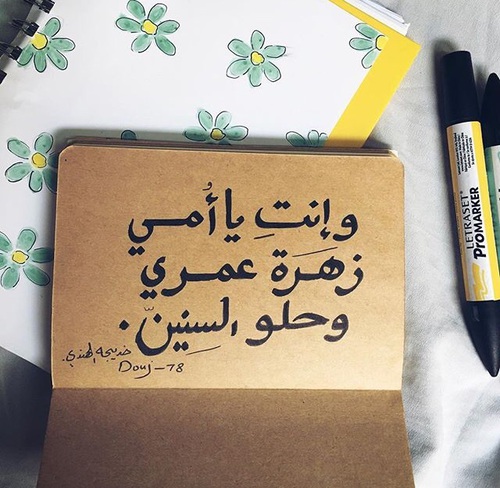 وإنتِ يا أُمـي
زهَرَة عمـري
وحلو السِنينّ.
خديجه الهندي.
Douj-78
LETRASET®
PROMARKER